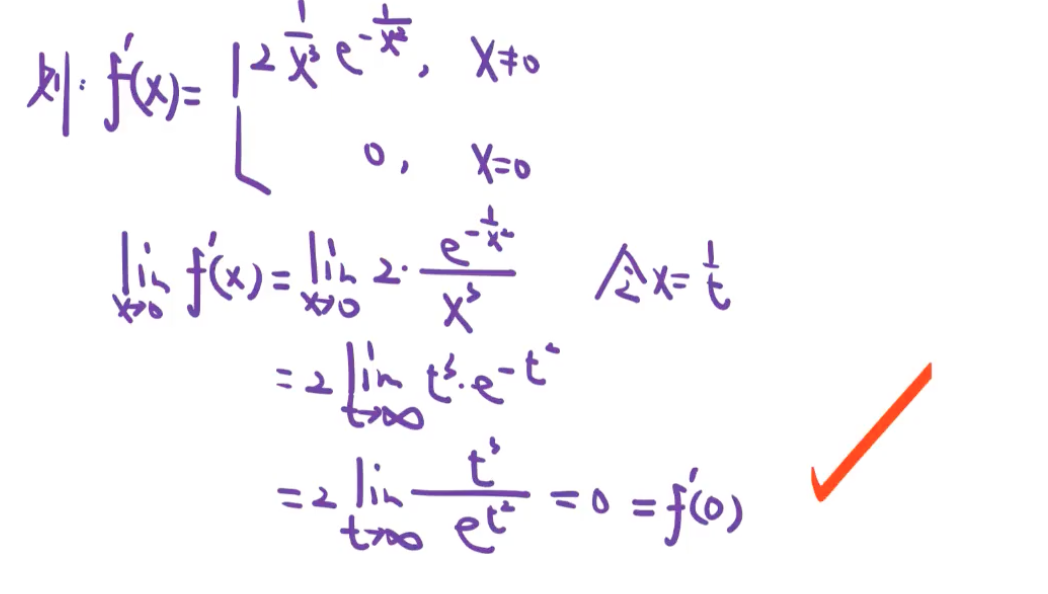 则: f'(x) = { 2 1/x³ e^(-1/x²), x≠0
0, x=0
lim_(x→0) f'(x) = lim_(x→0) 2· e^(-1/x²)/x³ 令 x = 1/t
= 2 lim_(t→∞) t³·e^(-t²)
= 2 lim_(t→∞) t³/e^(t²) = 0 = f'(0)